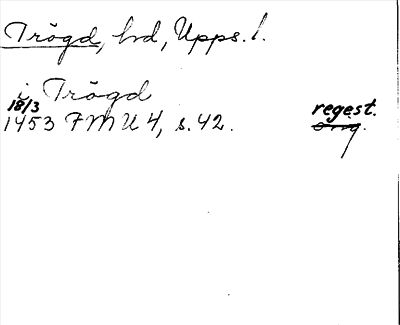 Trögd, hd, Upps. l.
i Trögd
18/3 regest.
1453 FMU 4, s. 42. orig.